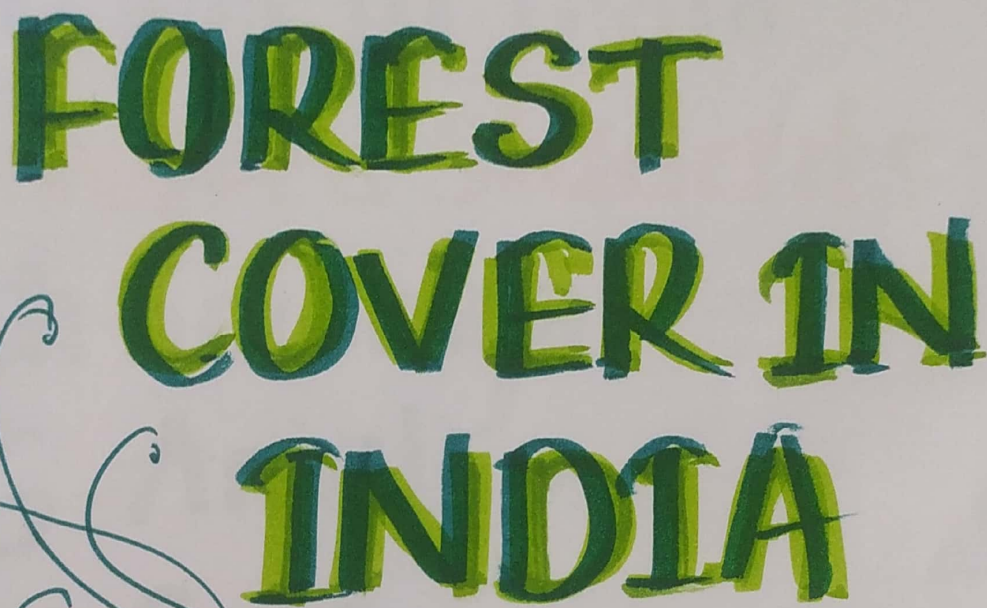 FOREST
COVER IN
INDIA